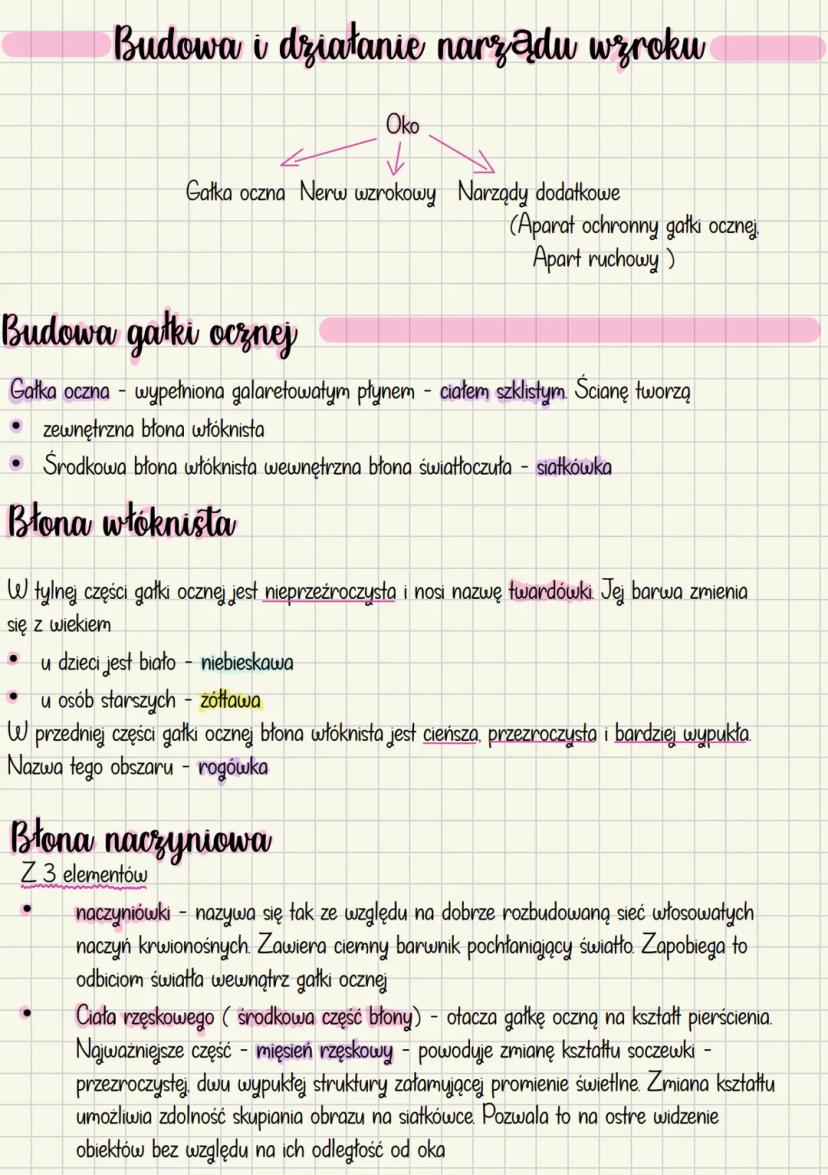 Budowa i działanie narządu wzroku
Oko
Gałka oczna Nerw wzrokowy Narządy dodatkowe
(Aparat ochronny gałki ocznej,
Apart ruchowy )
Budowa gałki ocznej
Gałka oczna - wypełniona galaretowatym płynem - ciałem szklistym. Ścianę tworzą
• zewnętrzna błona włóknista
• Środkowa błona włóknista wewnętrzna błona światłoczuła - siatkówka
Błona włóknista
W tylnej części gałki ocznej jest nieprzeźroczysta i nosi nazwę twardówki. Jej barwa zmienia
się z wiekiem
• u dzieci jest biało - niebieskawa
• u osób starszych - żółtawa
W przedniej części gałki ocznej błona włóknista jest cieńsza, przezroczysta i bardziej wypukła.
Nazwa tego obszaru - rogówka
Błona naczyniowa
Z 3 elementów
• naczyniówki - nazywa się tak ze względu na dobrze rozbudowaną sieć włosowatych
naczyń krwionośnych. Zawiera ciemny barwnik pochłaniający światło. Zapobiega to
odbiciom światła wewnątrz gałki ocznej
• Ciała rzęskowego ( środkowa część błony) - otacza gałkę oczną na kształt pierścienia.
Najważniejsze część - mięsień rzęskowy - powoduje zmianę kształtu soczewki -
przezroczystej, dwu wypukłej struktury załamującej promienie świetlne. Zmiana kształtu
umożliwia zdolność skupiania obrazu na siatkówce. Pozwala to na ostre widzenie
obiektów bez względu na ich odległość od oka